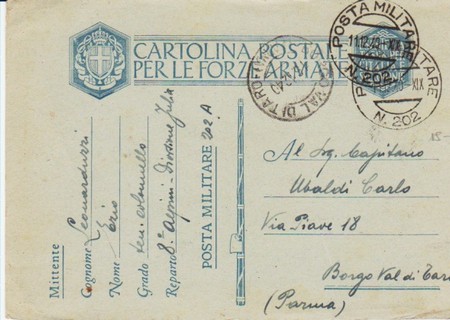 CARTOLINA POSTALE
PER LE FORZE ARMATE
POSTA MILITARE
11.12.40 XIX
N. 202
POSTA MILITARE
XIX
N. 202
VAL DI TARO
Mittente
Cognome Leonarduzzi
Nome Erio
Grado ten. colonnello
Reparto 8° Alpini - Divisione Julia
POSTA MILITARE 202 A
Al Sig. Capitano
Ubaldi Carlo
Via Piave 18
Borgo Val di Taro
(Parma)
15-